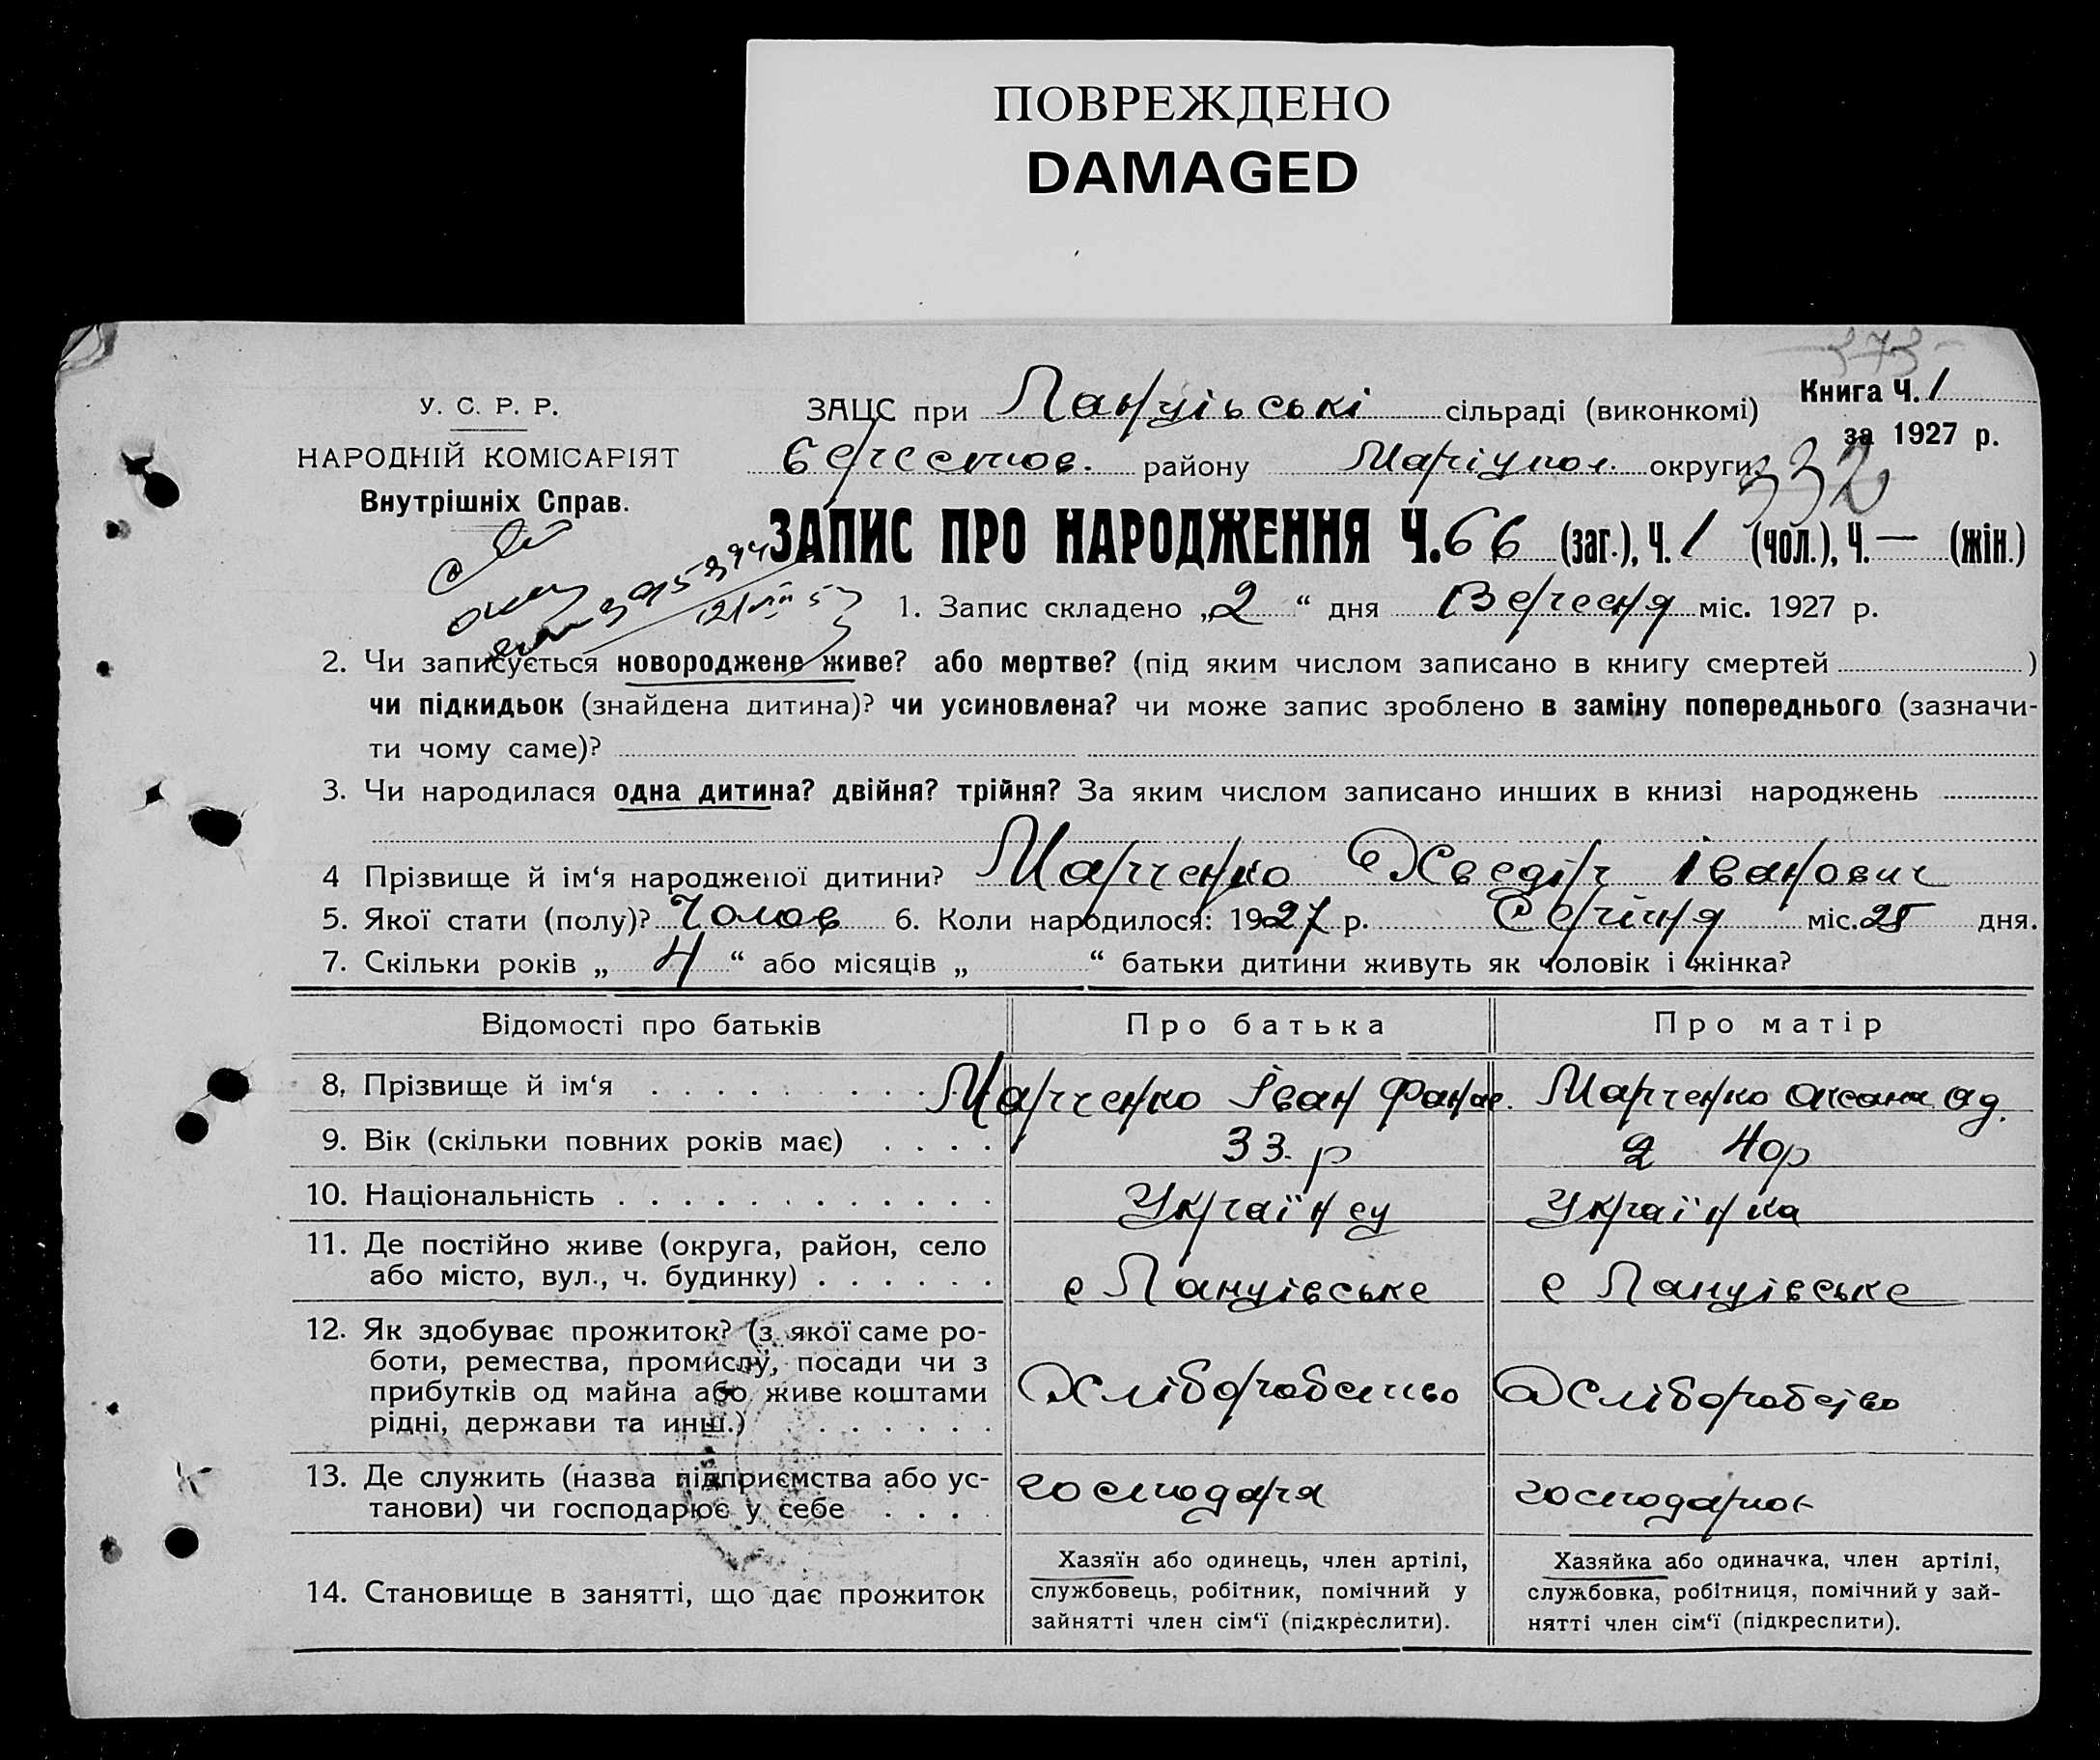 ПОВРЕЖДЕНО
DAMAGED
373
У. С. Р. Р.
НАРОДНІЙ КОМІСАРІЯТ
Внутрішніх Справ.
ЗАЦС при Ланцівські сільраді (виконкомі)
Книга Ч. 1
за 1927 р.
Берестов. району Маріупол. округи
332
ЗАПИС ПРО НАРОДЖЕННЯ Ч. 66 (заг.), Ч. 1 (чол.), Ч. — (жін.)
1. Запис складено „2“ дня Вересня міс. 1927 р.
2. Чи записується новороджене живе? або мертве? (під яким числом записано в книгу смертей )
чи підкидьок (знайдена дитина)? чи усиновлена? чи може запис зроблено в заміну попереднього (зазначи-
ти чому саме)?
3. Чи народилася одна дитина? двійня? трійня? За яким числом записано инших в книзі народжень
4 Прізвище й ім‘я народженої дитини? Марченко Хведір Іванович
5. Якої стати (полу)? Чолов 6. Коли народилося: 1927 р. Серпня міс. 25 дня.
7. Скільки років „ 4 “ або місяців „ “ батьки дитини живуть як чоловік і жінка?
Відомості про батьків Про батька Про матір
8. Прізвище й ім‘я Марченко Іван Фанас. Марченко Оксана Од.
9. Вік (скільки повних років має) 33 р 40р
10. Національність Українец Українка
11. Де постійно живе (округа, район, село
або місто, вул., ч. будинку) с Ланцівське с Ланцівське
12. Як здобуває прожиток? (з якої саме ро-
боти, ремества, промислу, посади чи з
прибутків од майна або живе коштами
рідні, держави та инш.) Хліборобство Хліборобство
13. Де служить (назва підприємства або ус-
танови) чи господарює у себе господаря господарює
14. Становище в занятті, що дає прожиток
Хазяїн або одинець, член артілі,
службовець, робітник, помічний у
зайнятті член сім‘ї (підкреслити).
Хазяйка або одиначка, член артілі,
службовка, робітниця, помічний у зай-
нятті член сім‘ї (підкреслити).